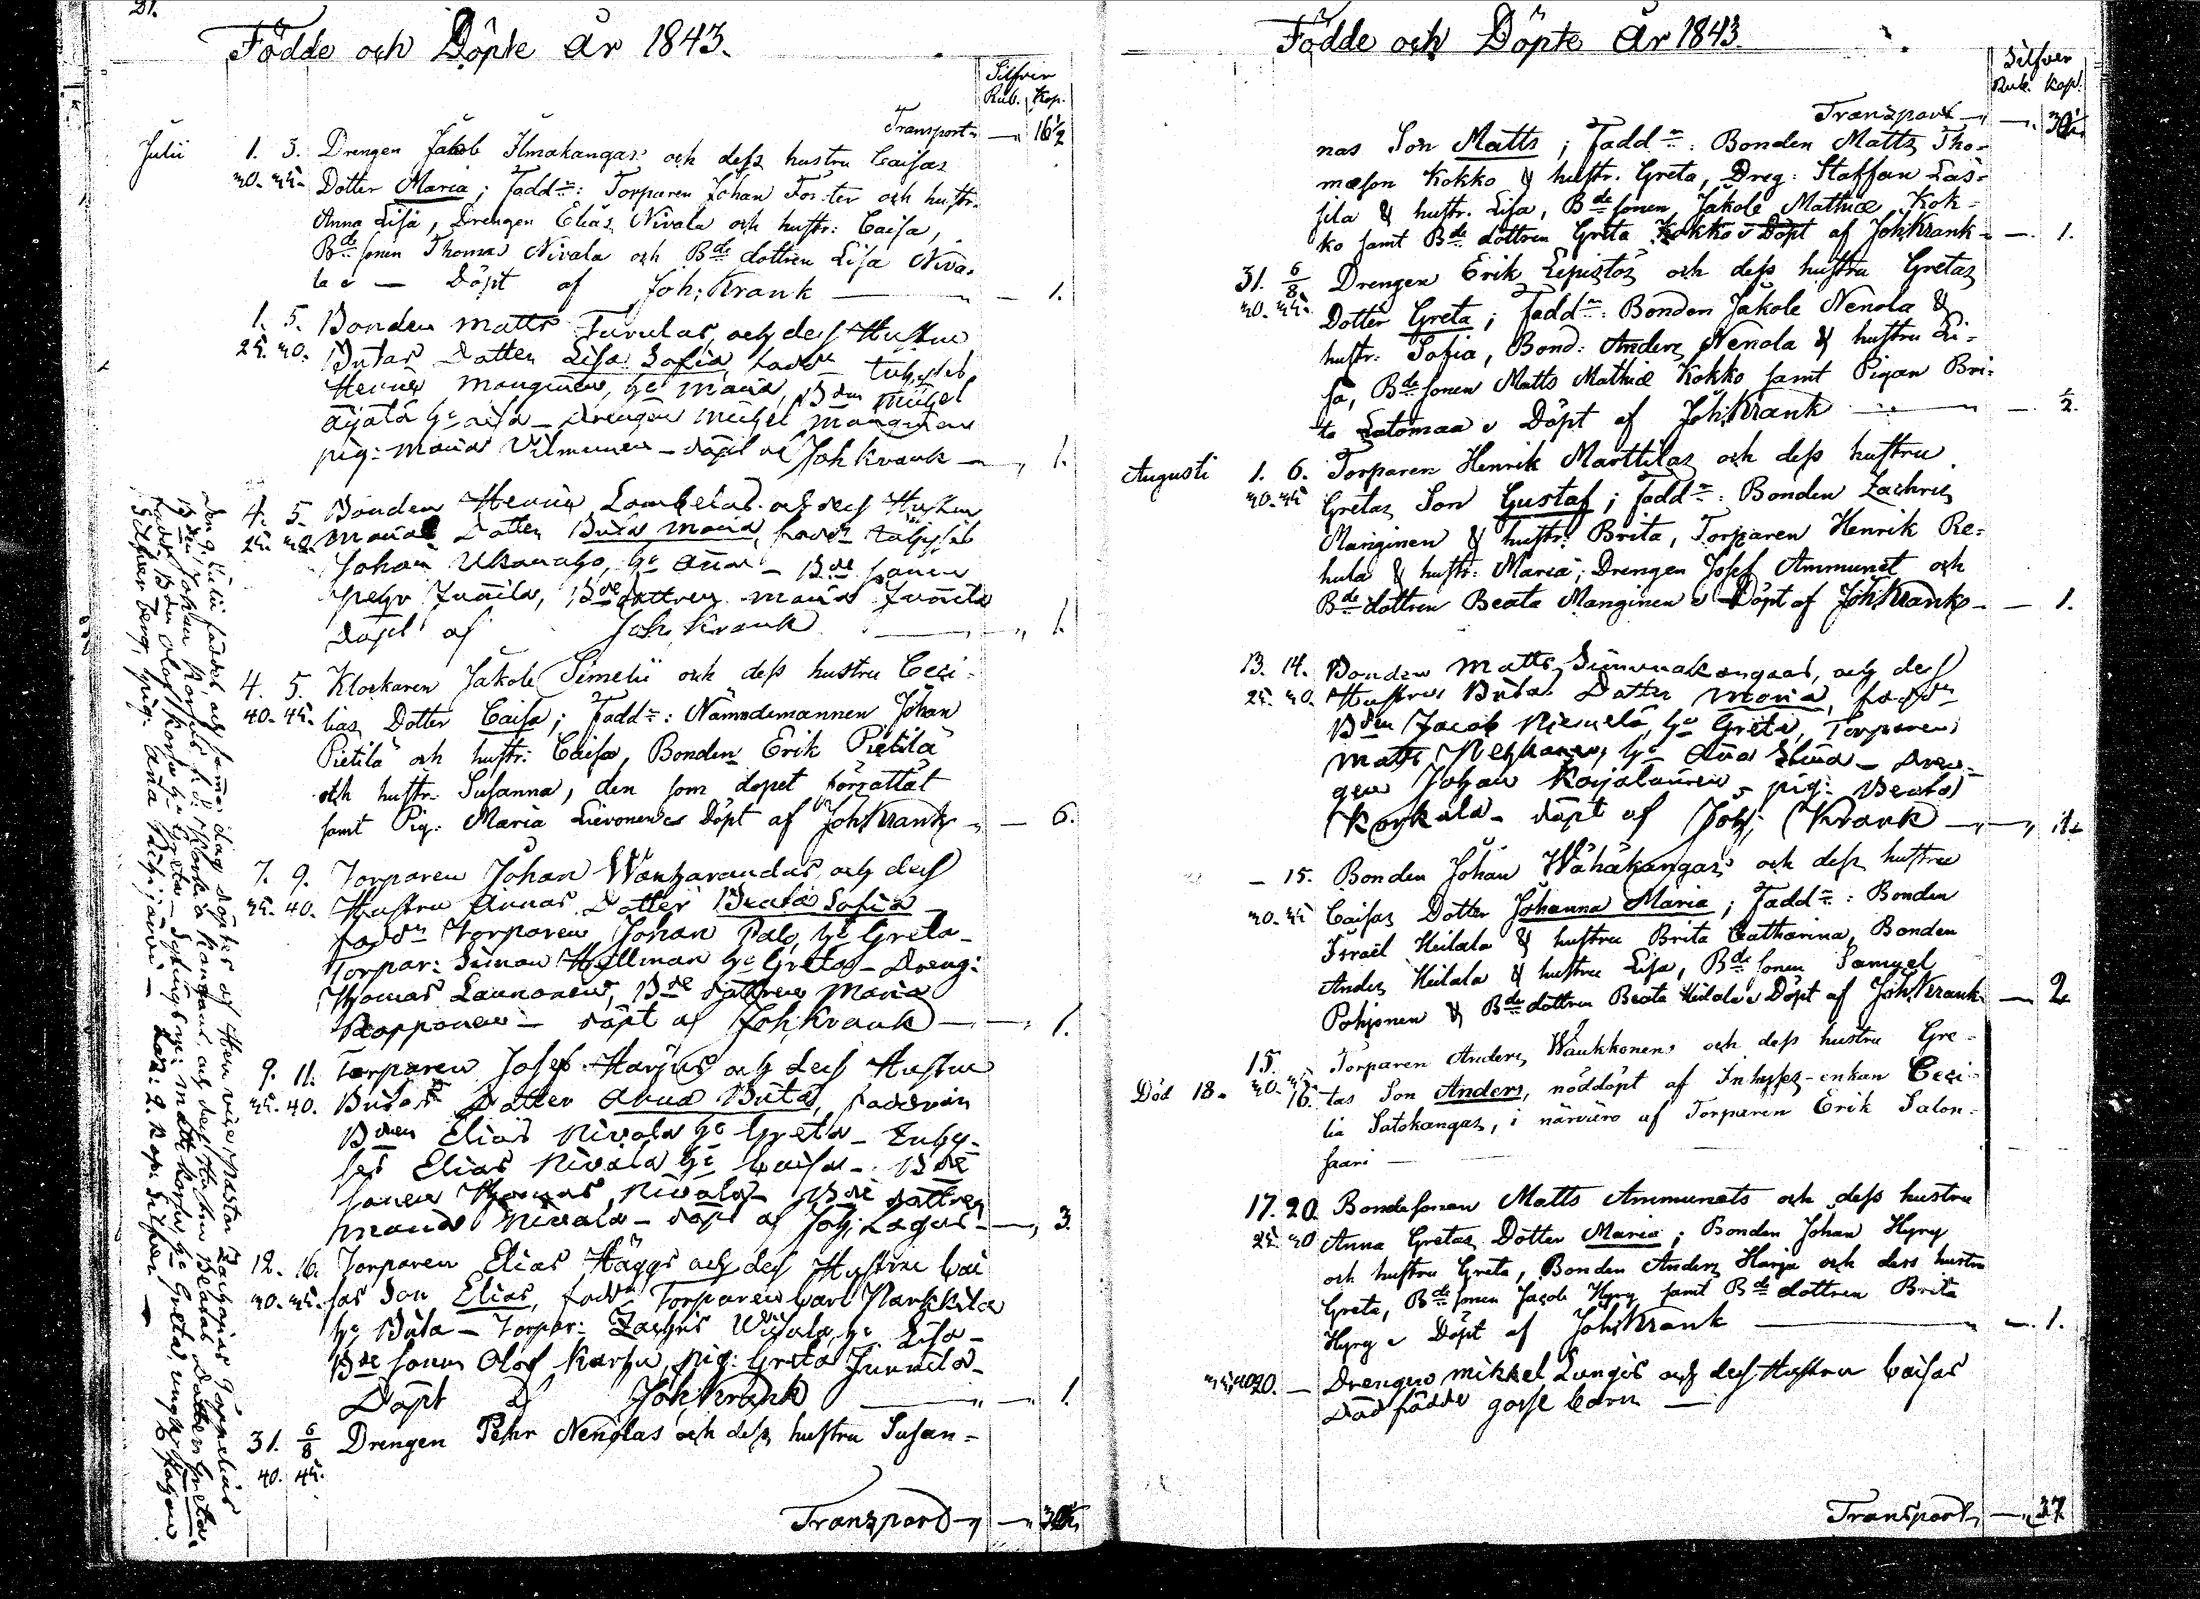 21.
Födde och Döpte år 1843.
Silfver
Rub. Kop.
Transport — 16½
Julii 1. 3. Drengen Jakob Ilmakangas och dess hustru Caisas
30. 35. Dotter Maria; Fadd:r: Torparen Johan Forster och hustr.
Anna Lisa, Drengen Elias Nivala och hustr: Caisa,
B:de sonen Thomas Nivala och B:de dottren Lisa Niva-
la — Döpt af Joh. Krank — 1.
1. 5. Bonden Matts Turulas och dess Hustru
25. 30. Britas Dotter Lisa Sofia, fadd:r Inhyses
Henric Manginen, h:u Maria, B:den Michel
h:u Caisa — Drengen Michel Manginen
pig: Maria Vilmunen — döpt af Joh Krank — 1.
4. 5. Bonden Henric Lambelas och dess Hustru
25. 30. Marias Dotter Brita Maria, fadd:r Inhyses
Johan Ukonaho, h:u Anna — B:de sonen
Pehr Junnila, B:de dottren Maria Junnila
Döpt af Joh. Krank — 1.
4. 5. Klockaren Jakob Simelii och dess hustru Ceci-
40. 45. lias Dotter Caisa; Fadd:r: Nämndemannen Johan
Pietilä och hustr: Caisa, Bonden Erik Pietilä
och hustr. Susanna, den som dopet förrättat
samt Pig: Maria Lievonen Döpt af Joh Krank — 6.
7. 9. Torparen Johan och dess
35. 40. Hustru Annas Dotter Beata Sofia
fadd:r Torparen Johan Palo h:u Greta —
Torpar: Simon Hellman h:u Greta — Dreng:
Thomas Launonen, B:de dottren Maria
Ropponen — döpt af Joh. Krank — 1.
9. 11. Torparen Josef Harjus och dess Hustru
35. 40. Britas Dotter Anna Brita, faddrar
B:den Elias Nivala h:u Greta — Inhy-
ses Elias Nivala h:u Caisa — B:de
sonen Thomas Nivala — B:de dottren
Maria Nivala — döpt af Joh. Lagus — 3.
12. 16. Torparen Elias Häggs och dess Hustru Cai
30. 35. sas Son Elias, fadd:r Torparen Carl Markkila
h:u Brita — Torpar: Zachris h:u Lisa —
B:de sonen Olof Karhu, pig: Greta Junnila —
Döpt af Joh Krank — 1.
31. 6/8 Drengen Pehr Nenolas och dess hustru Susan-
40. 45.
Transport
Den 9 Julii föddes, och samma dag döptes af Herr vice Pastor Zacharias Toppelius
B:den Johan Korhus från Norra Kangand och dess Hustru Beatas Dotter Greta.
Fadd:r B:den Olof Korhu h:u Greta — Matts Korhu h:u Greta, ungkarl
Silfverberg, pig: Anna — Lös: 2. Kop: Silfver —
Födde och Döpte år 1843.
Silfver
Rub. Kop.
Transport
nas Son Matts; Fadd:r: Bonden Matts Tho-
mæson Kokko & hustr. Greta, Dreg: Staffan Las-
sila & hustr. Lisa, B:de sonen Jakob Mathiæ Kok-
ko samt B:de dottren Greta Kokko Döpt af Joh. Krank — 1.
31. 6/8 Drengen Erik Lepistös och dess hustru Gretas
30. 35. Dotter Greta; Fadd:r: Bonden Jakob Nenola &
hustr: Sofia, Bond: Anders Nenola & hustru Li-
sa, B:de sonen Matts Mathiæ Kokko samt Pigan Bri-
ta Latomaa Döpt af Joh. Krank — ½.
Augusti 1. 6. Torparen Henrik Marttilas och dess hustru
30. 35 Gretas Son Gustaf; Fadd:r: Bonden Zachris
Manginen & hustr: Brita, Torparen Henrik Re-
hula & hustr: Maria; Drengen Josef Ammunet och
B:de dottren Beata Manginen Döpt af Joh. Krank — 1.
13. 14. Bonden Matts och dess
25. 30. Hustru Britas Dotter Maria, fadd:r
B:den Jacob Niemelä, h:u Greta, Torparen
Matts h:u Anna Stina — Dren-
gen Johan Karjalainen, pig: Beata
Korkala — döpt af Joh. Krank
— 15. Bonden Johan Wähäkangas och dess hustru
30. 35 Caisas Dotter Johanna Maria; Fadd:r: Bonden
Israel Heilala & hustru Brita Catharina, Bonden
Anders Heilala & hustru Lisa, B:de sonen Samuel
Pohjonen & B:de dottren Beata Heilala Döpt af Joh. Krank — 2
15. Torparen Anders Waukkonens och dess hustru Gre-
Död 18. 30. 16. tas Son Anders, nöddöpt af Inhyses-enkan Ceci-
lia Satokangas, i närvaro af Torparen Erik Salon-
saari —
17. 20. Bondesonen Matts Ammunets och dess hustru
25. 30 Anna Gretas Dotter Maria; Bonden Johan Hyry
och hustru Greta, Bonden Anders Harja och dess hustru
Greta, B:de sonen Jacob Hyry samt B:de dottren Brita
Hyry Döpt af Joh. Krank — 1.
20. — Drengens Mikkel Lungis och dess Hustru Caisas
dödfödde gosse barn —
Transport — 37